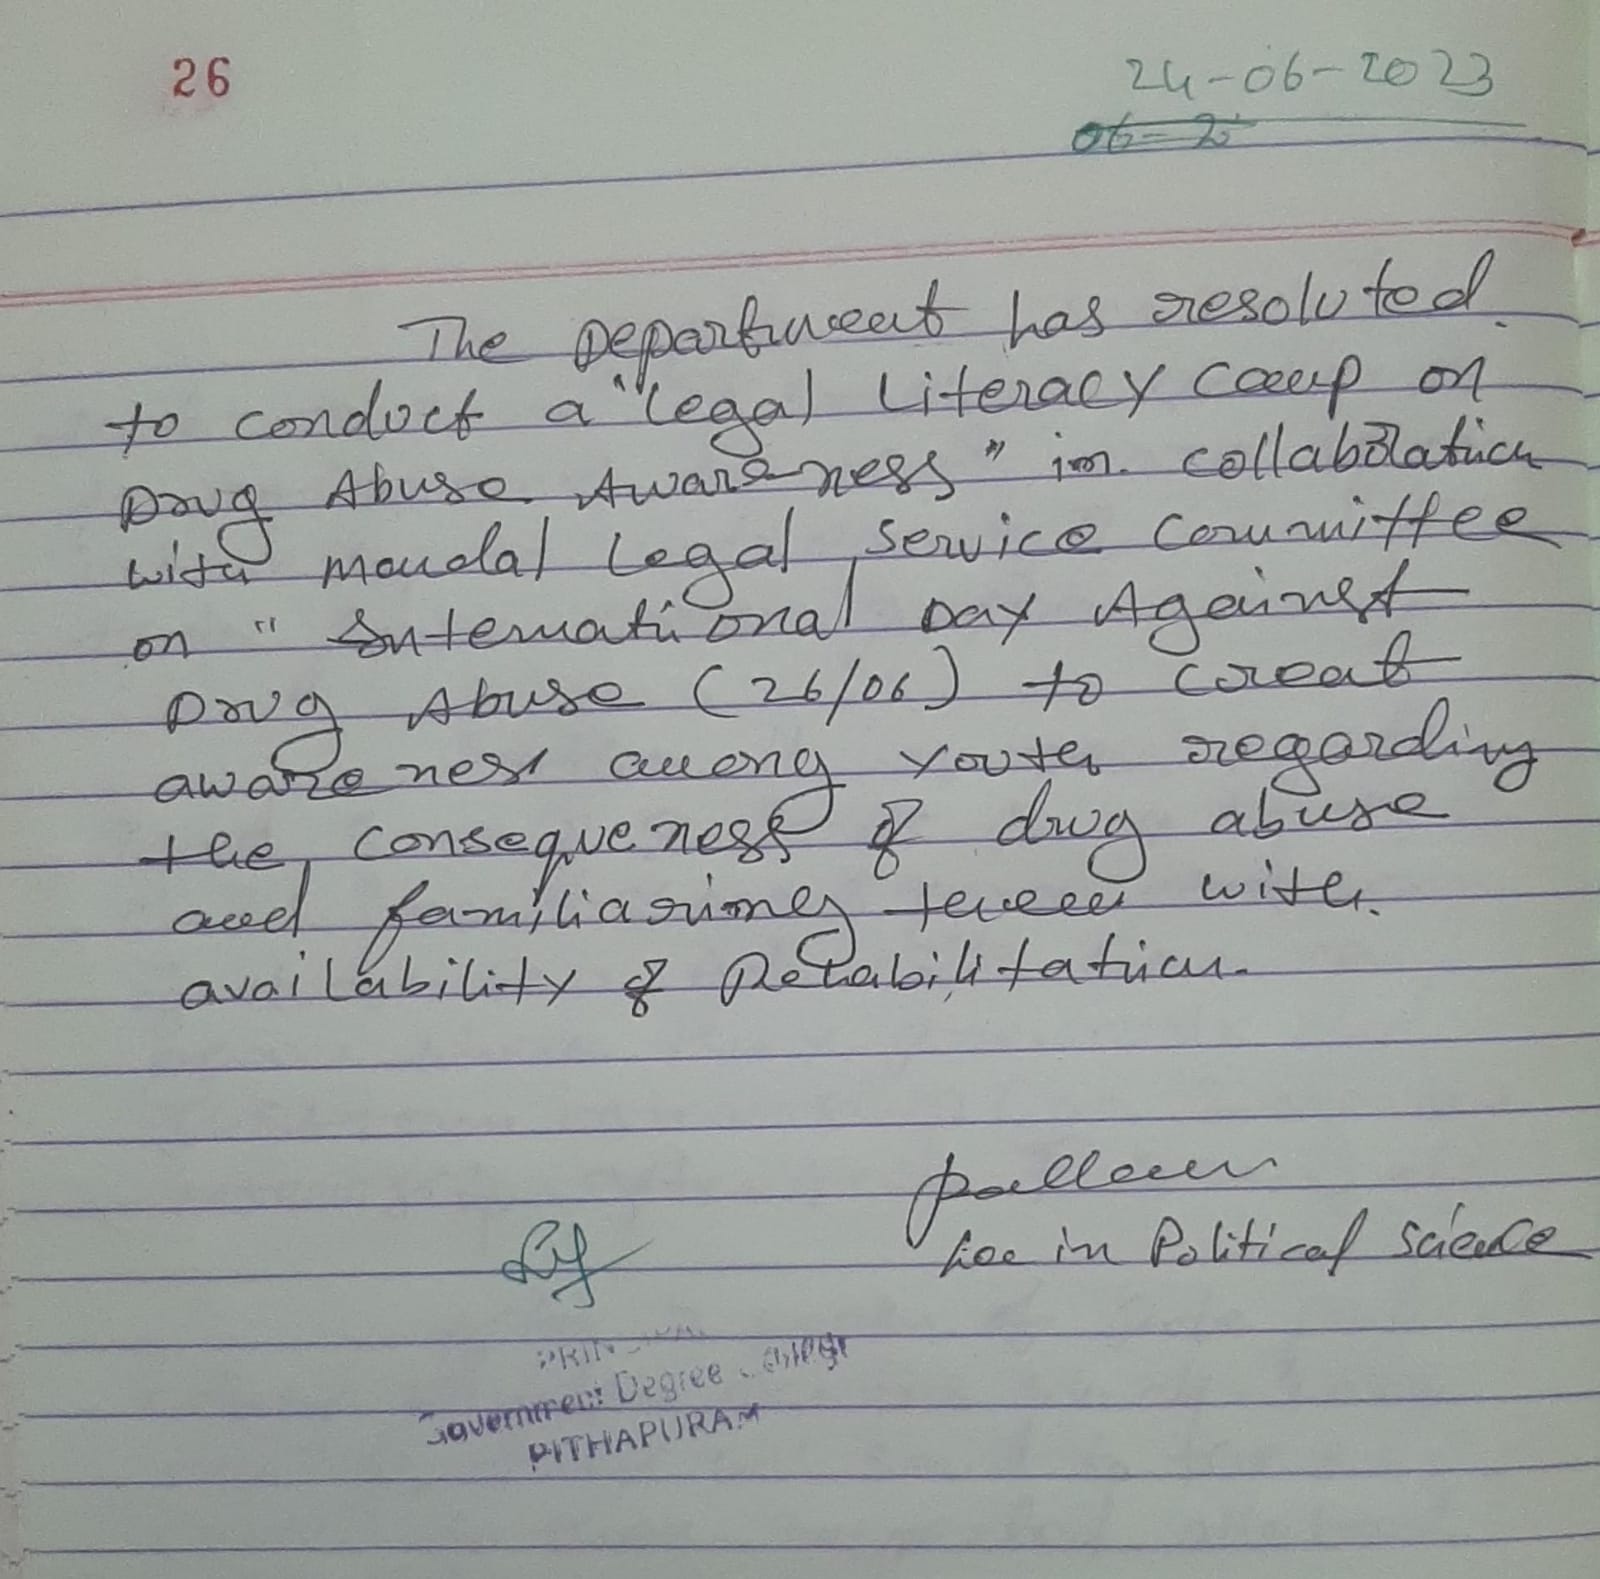 26
24-06-2023
06-2
The Department has resoluted
to conduct a "Legal Literacy Camp on
Drug Abuse Awareness" in collaboration
with Mandal Legal Service Committee
on " International Day Against
Drug Abuse (26/06) to creat
awareness among youth regarding
the consequeness of drug abuse
and familiarimg them with
availability of Rehabilitation.
in Political Science
PRINCIPAL
Government Degree College
PITHAPURAM